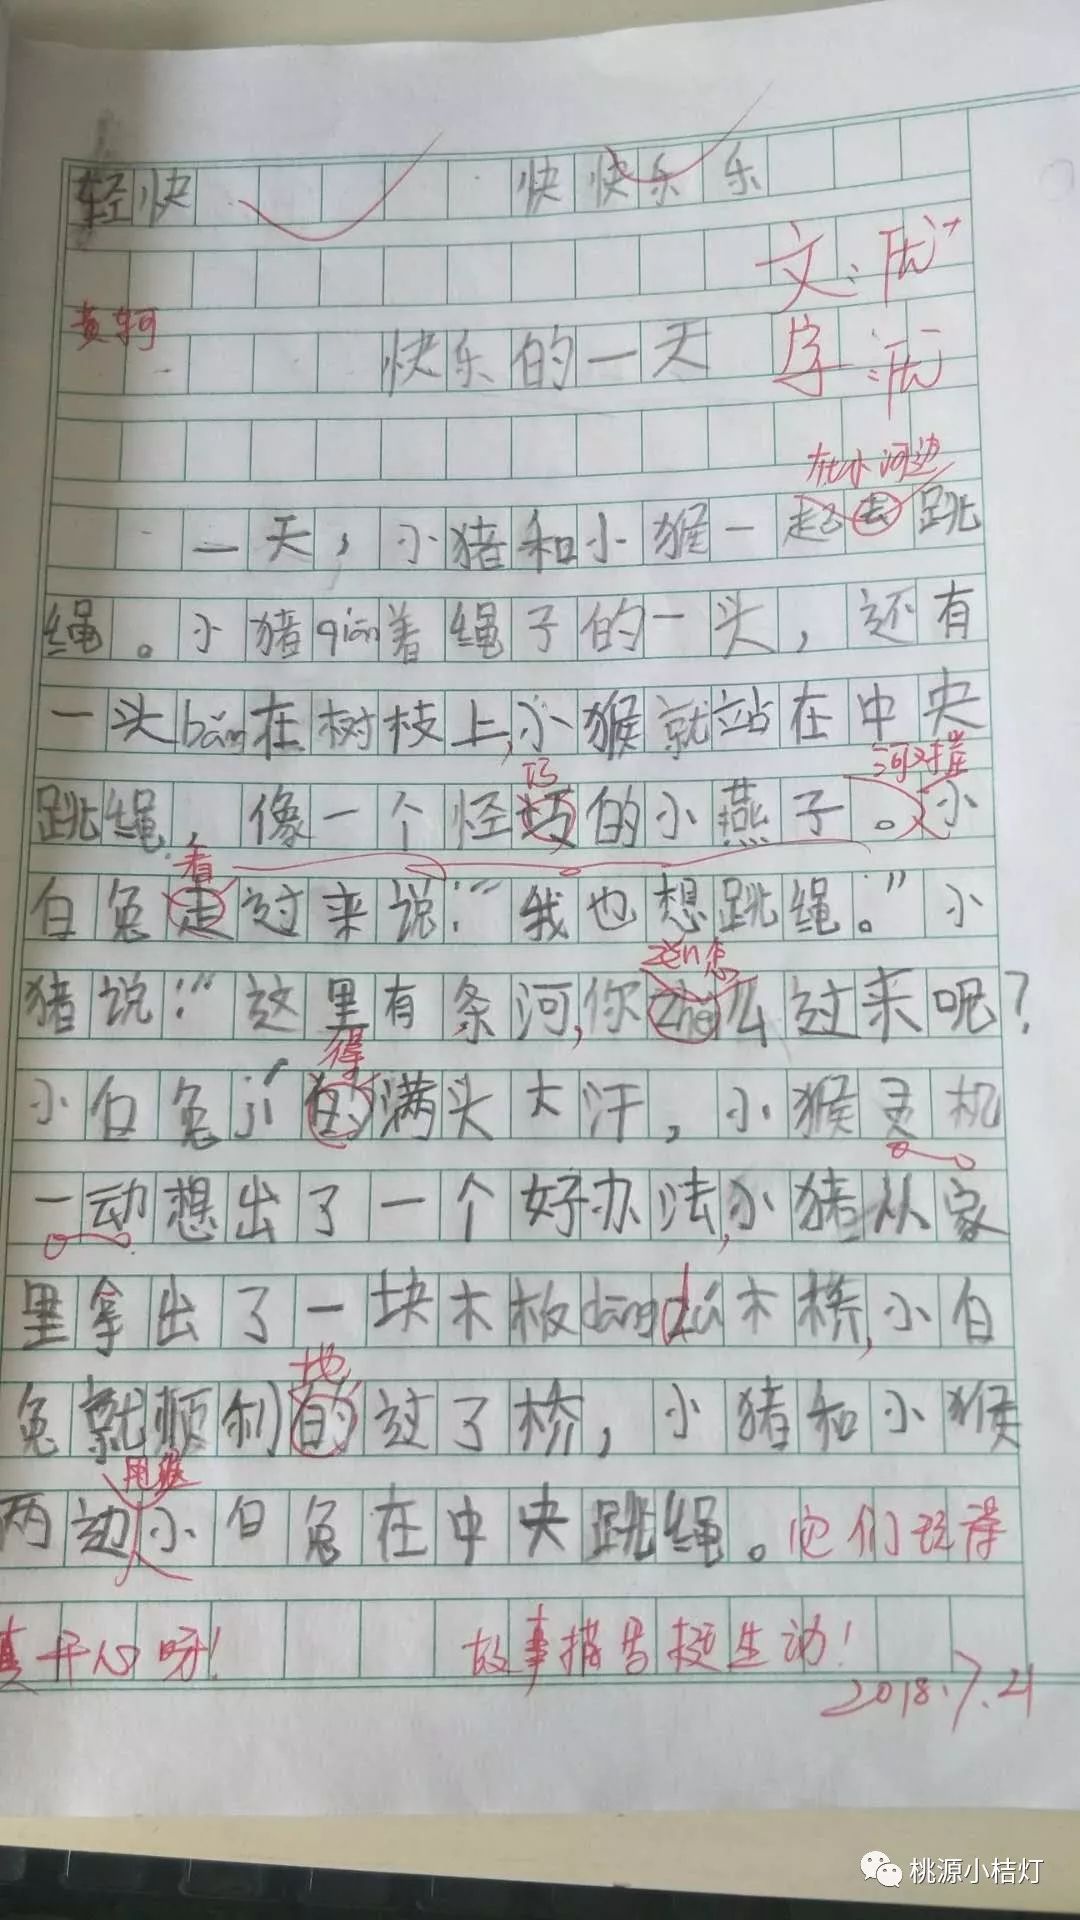 轻快 快快乐乐
文:优+
黄轲
快乐的一天 字:优-
在小河边
一天,小猪和小猴一起去跳
绳。小猪qiān着绳子的一头,还有
一头bǎng在树枝上,小猴就站在中央
巧 河对岸
跳绳,像一个怪巧的小燕子。小
看
白兔走过来说:“我也想跳绳。”小
zěn怎
猪说:“这里有条河,你zhe么过来呢?
得
小白兔jí的满头大汗,小猴灵机
一动想出了一个好办法,小猪从家
里拿出了一块木板dāng zú木桥,小白
地
兔就顺利的过了桥,小猪和小猴
甩绳
两边小白兔在中央跳绳。他们玩得
真开心呀! 故事描写挺生动!
2018.7.21
桃源小桔灯